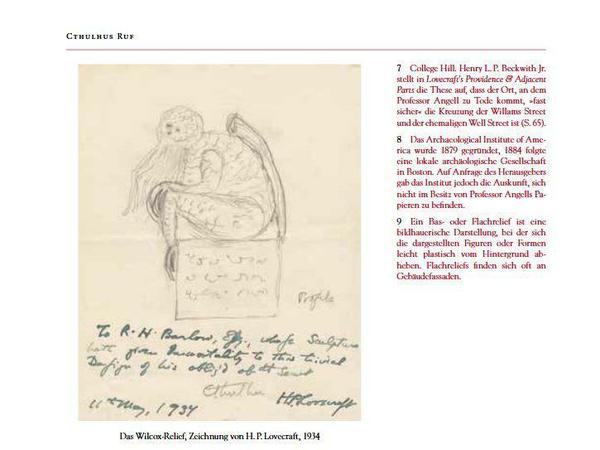 Cthulhus Ruf
Profile
To R. H. Barlow, Esq., whose Sculpture
hath given Immortality to this trivial
Design of his oblig'd obt Servt
Cthulhu
H P Lovecraft
11th May, 1934
Das Wilcox-Relief, Zeichnung von H. P. Lovecraft, 1934
7 College Hill. Henry L. P. Beckwith Jr.
stellt in Lovecraft's Providence & Adjacent
Parts die These auf, dass der Ort, an dem
Professor Angell zu Tode kommt, »fast
sicher« die Kreuzung der Willams Street
und der ehemaligen Well Street ist (S. 65).
8 Das Archaeological Institute of Ame-
rica wurde 1879 gegründet, 1884 folgte
eine lokale archäologische Gesellschaft
in Boston. Auf Anfrage des Herausgebers
gab das Institut jedoch die Auskunft, sich
nicht im Besitz von Professor Angells Pa-
pieren zu befinden.
9 Ein Bas- oder Flachrelief ist eine
bildhauerische Darstellung, bei der sich
die dargestellten Figuren oder Formen
leicht plastisch vom Hintergrund ab-
heben. Flachreliefs finden sich oft an
Gebäudefassaden.